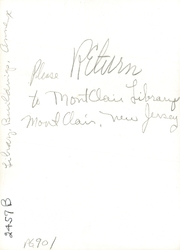 Please Return
to MontClair Library
MontClair, New Jersey
Library: Buildings: Annex
2457B
P6901